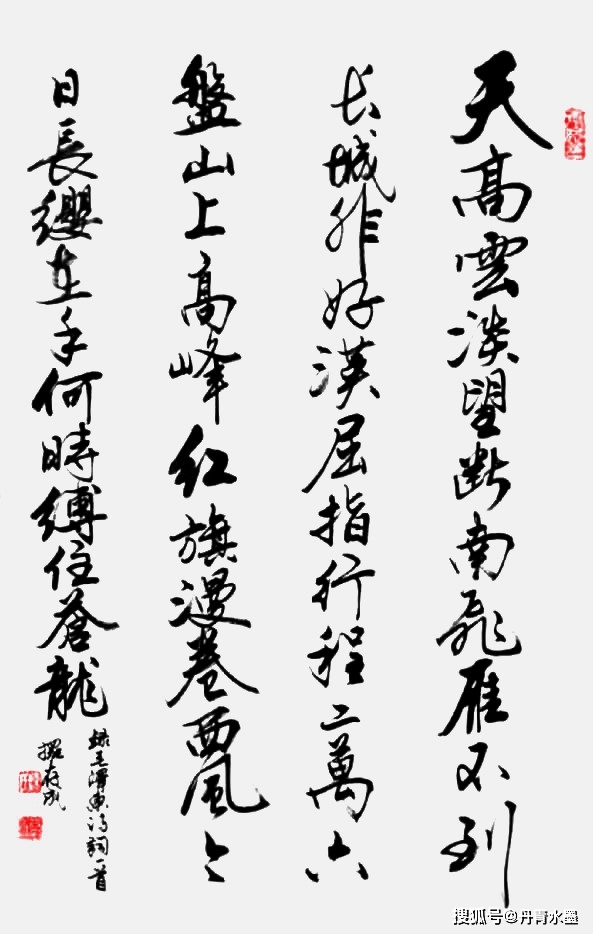 天高雲淡望斷南飛雁不到
长城非好漢屈指行程二萬六
盤山上高峰紅旗漫卷西風今
日長纓在手何時縛住蒼龍
録毛澤東詩詞一首
存成
搜狐号@丹青水墨